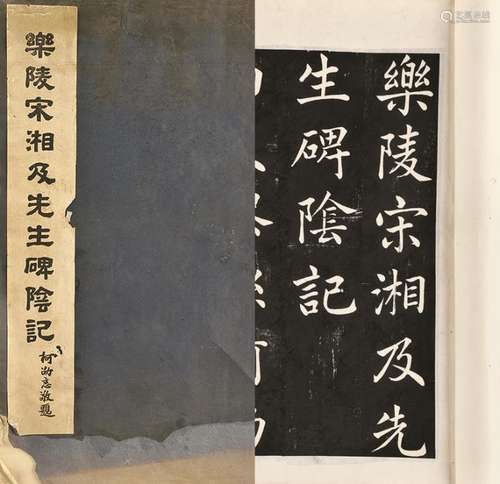 樂陵宋湘及先生碑陰記
柯劭忞敬題
樂陵宋湘及先
生碑陰記